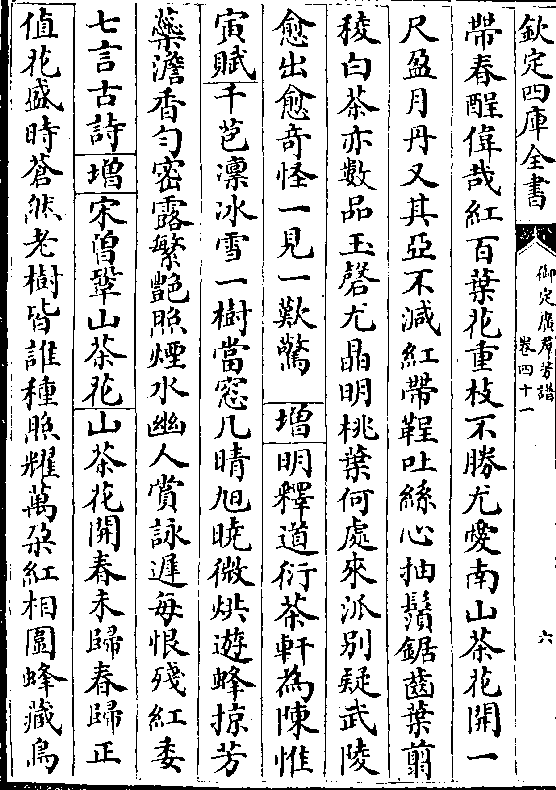 欽定四庫全書
御定廣羣芳譜
卷四十一
六
帶春酲偉哉紅百葉花重枝不勝尤愛南山茶花開一
尺盈月丹又其亞不減紅帶鞓吐絲心抽鬚鋸齒葉剪
稜白茶亦數品玉磬尤晶明桃葉何處來派别疑武陵
愈出愈奇怪一見一歎驚 增明釋道衍茶軒為陳惟
寅賦千苞凜冰雪一樹當窓几晴旭曉微烘遊蜂掠芳
蘂澹香勻密露繁艶照煙水幽人賞詠遲每恨殘紅委
七言古詩增宋曾鞏山茶花山茶花開春未歸春歸正
值花盛時蒼然老樹皆誰種照耀萬朶紅相圍蜂藏鳥